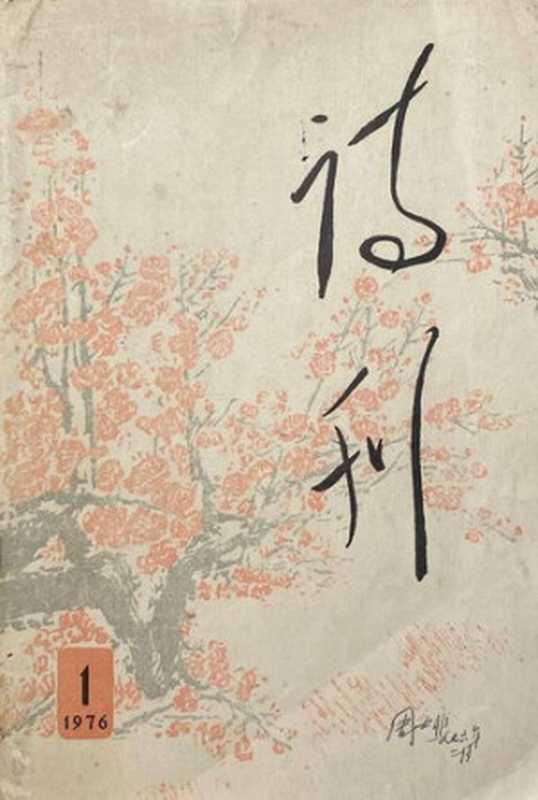 诗刊
1
1976